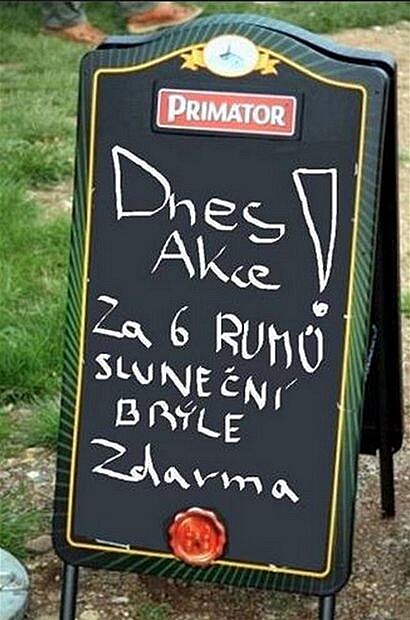 PRIMATOR
Dnes !
Akce
Za 6 RUMŮ
SLUNEČNÍ
BRÝLE
Zdarma